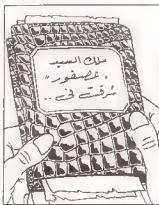 ملك السيد
"عصفور"
سُرقت فى ..